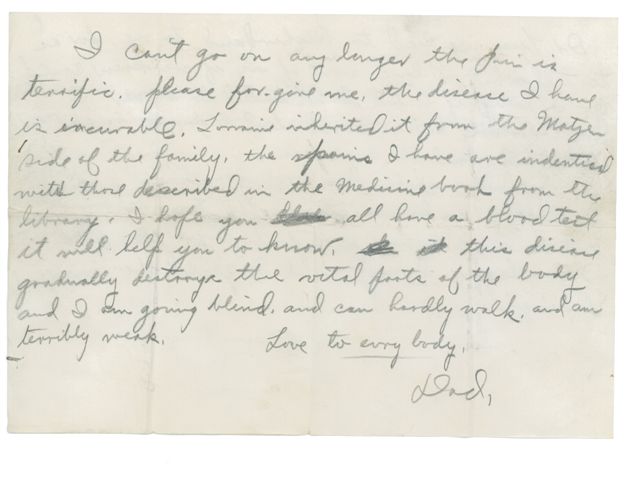 I can't go on any longer the pain is
terrific. please for-give me, the disease I have
is incurable, Lorraine inherited it from the Motzer
side of the family, the pains I have are indentical
with those described in the medicine book from the
library. I hope you all have a blood test
it will help you to know, this disease
gradually destroys the vital parts of the body
and I am going blind. and can hardly walk. and am
terribly weak.
Love to evry body,
Dad,